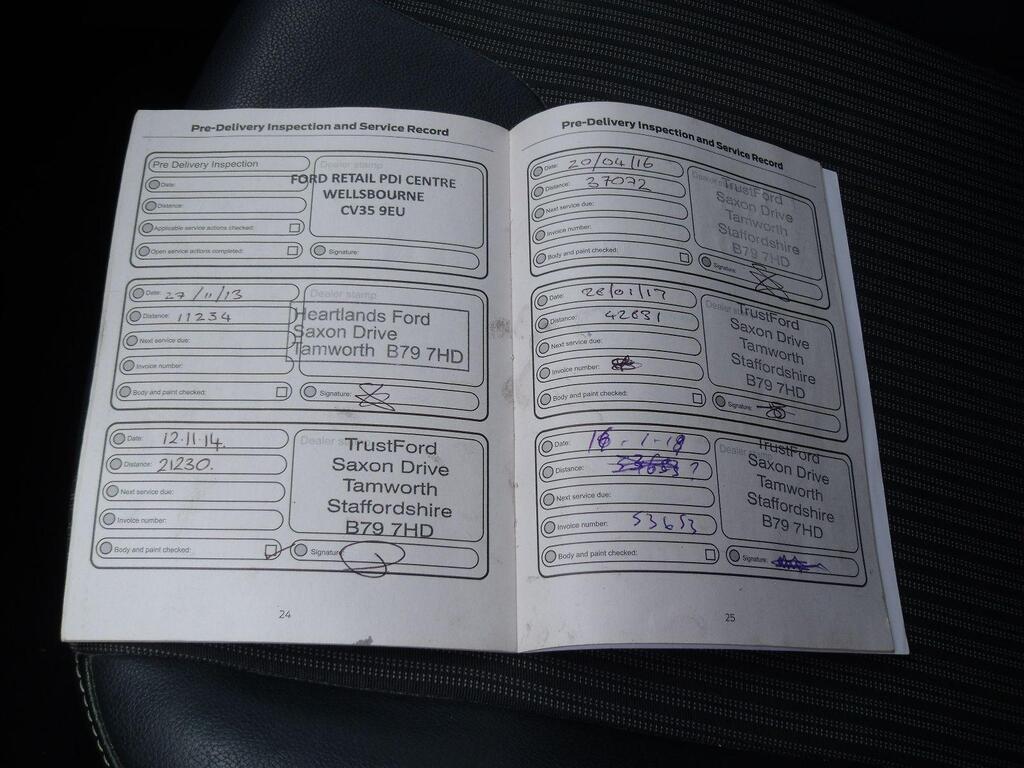 Pre-Delivery Inspection and Service Record
Pre Delivery Inspection
Date:
Distance:
Applicable service actions checked:
Open service actions completed:
Dealer stamp
FORD RETAIL PDI CENTRE
WELLSBOURNE
CV35 9EU
Signature:
Date: 27/11/13
Distance: 11234
Next service due:
Invoice number:
Body and paint checked:
Dealer stamp
Heartlands Ford
Saxon Drive
Tamworth B79 7HD
Signature:
Date: 12.11.14.
Distance: 21230.
Next service due:
Invoice number:
Body and paint checked:
Dealer stamp
TrustFord
Saxon Drive
Tamworth
Staffordshire
B79 7HD
Signature:
24
Pre-Delivery Inspection and Service Record
Date: 20/04/16
Distance: 37072
Next service due:
Invoice number:
Body and paint checked:
Dealer stamp
TrustFord
Saxon Drive
Tamworth
Staffordshire
B79 7HD
Signature:
Date: 26/01/17
Distance: 42831
Next service due:
Invoice number:
Body and paint checked:
Dealer stamp
TrustFord
Saxon Drive
Tamworth
Staffordshire
B79 7HD
Signature:
Date: 16-1-18
Distance: ?
Next service due:
Invoice number: 53653
Body and paint checked:
Dealer stamp
TrustFord
Saxon Drive
Tamworth
Staffordshire
B79 7HD
Signature:
25